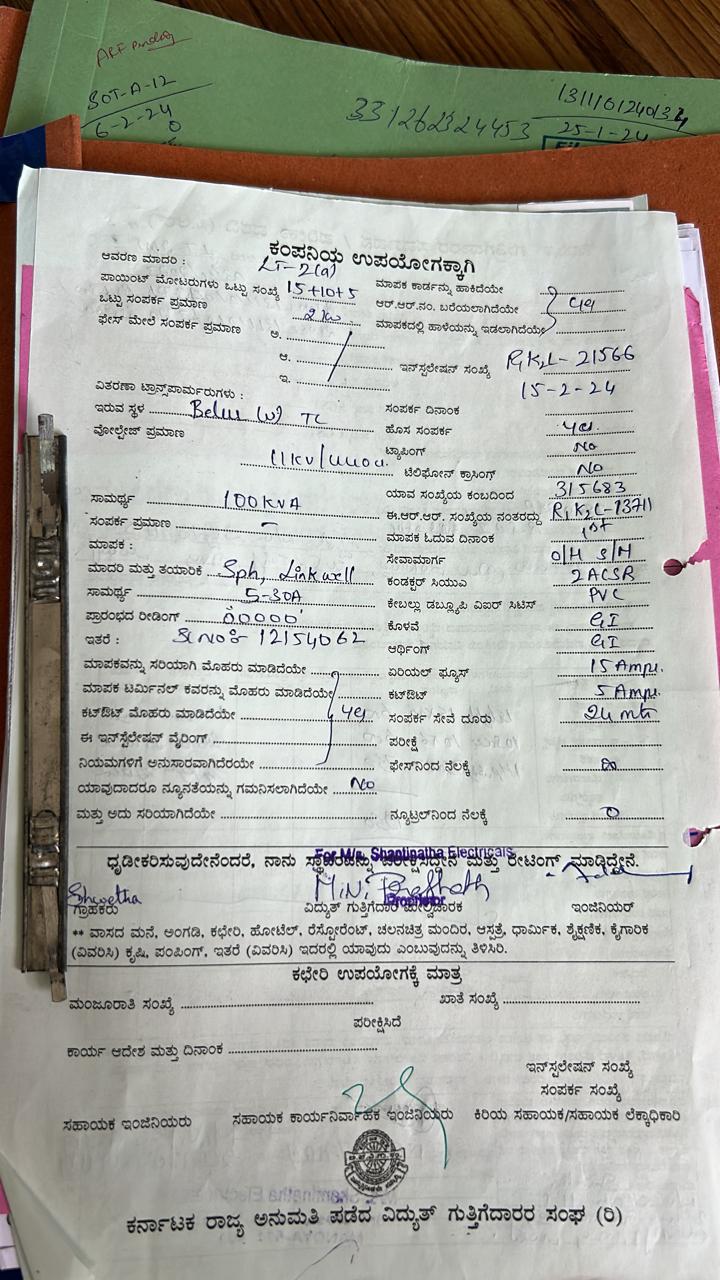 ARF Pending
SOT-A-12
6-2-24
331262324453
25-1-24
ಕಂಪನಿಯ ಉಪಯೋಗಕ್ಕಾಗಿ
ಆವರಣ ಮಾದರಿ : LT-2(a)
ಪಾಯಿಂಟ್ ಮೋಟರುಗಳು ಒಟ್ಟು ಸಂಖ್ಯೆ 15+10+5 ಮಾಪಕ ಕಾರ್ಡನ್ನು ಹಾಕಿದೆಯೇ
ಒಟ್ಟು ಸಂಪರ್ಕ ಪ್ರಮಾಣ 2 kw ಆರ್.ಆರ್.ನಂ. ಬರೆಯಲಾಗಿದೆಯೇ yes
ಫೇಸ್ ಮೇಲೆ ಸಂಪರ್ಕ ಪ್ರಮಾಣ ಅ. ಮಾಪಕದಲ್ಲಿ ಹಾಳೆಯನ್ನು ಇಡಲಾಗಿದೆಯೇ
ಆ. ಇನ್‌ಸ್ಟಲೇಷನ್ ಸಂಖ್ಯೆ R1K2L-21566
ಇ. 15-2-24
ವಿತರಣಾ ಟ್ರಾನ್ಸ್‌ಪಾರ್ಮರುಗಳು :
ಇರುವ ಸ್ಥಳ Belur (w) TC ಸಂಪರ್ಕ ದಿನಾಂಕ
ವೋಲ್ಟೇಜ್ ಪ್ರಮಾಣ ಹೊಸ ಸಂಪರ್ಕ yes
11kv/440v. ಟ್ಯಾಪಿಂಗ್ No
ಟೆಲಿಫೋನ್ ಕ್ರಾಸಿಂಗ್ No
ಸಾಮರ್ಥ್ಯ 100KVA ಯಾವ ಸಂಖ್ಯೆಯ ಕಂಬದಿಂದ 315683
ಸಂಪರ್ಕ ಪ್ರಮಾಣ - ಈ.ಆರ್.ಆರ್. ಸಂಖ್ಯೆಯ ನಂತರದ್ದು R1K2L-13711
ಮಾಪಕ : ಮಾಪಕ ಓದುವ ದಿನಾಂಕ 1st
ಮಾದರಿ ಮತ್ತು ತಯಾರಿಕೆ Sph, Linkwell ಸೇವಾಮಾರ್ಗ O/H S/M
ಸಾಮರ್ಥ್ಯ 5-30A ಕಂಡಕ್ಟರ್ ಸಿಯುಎ 2ACSR
ಪ್ರಾರಂಭದ ರೀಡಿಂಗ್ 00000 ಕೇಬಲ್ಲು ಡಬ್ಲ್ಯೂಪಿ ಐಐರ್ ಸಿಟಿಸ್ PVC
ಇತರೆ : Sl No:- 12154062 ಕೊಳವೆ GI
ಆರ್ಥಿಂಗ್ GI
ಮಾಪಕವನ್ನು ಸರಿಯಾಗಿ ಮೊಹರು ಮಾಡಿದೆಯೇ ಏರಿಯಲ್ ಫ್ಯೂಸ್ 15 Amps.
ಮಾಪಕ ಟರ್ಮಿನಲ್ ಕವರನ್ನು ಮೊಹರು ಮಾಡಿದೆಯೇ ಕಟ್‌ಔಟ್ 5 Amps.
ಕಟ್‌ಔಟ್ ಮೊಹರು ಮಾಡಿದೆಯೇ yes ಸಂಪರ್ಕ ಸೇವೆ ದೂರು 24 mtr
ಈ ಇನ್‌ಸ್ಟಲೇಷನ್ ವೈರಿಂಗ್ ಪರೀಕ್ಷೆ
ನಿಯಮಗಳಿಗೆ ಅನುಸಾರವಾಗಿದೆಯೇ ಫೇಸ್‌ನಿಂದ ನೆಲಕ್ಕೆ
ಯಾವುದಾದರೂ ನ್ಯೂನತೆಯನ್ನು ಗಮನಿಸಲಾಗಿದೆಯೇ No
ಮತ್ತು ಅದು ಸರಿಯಾಗಿದೆಯೇ ನ್ಯೂಟ್ರಲ್‌ನಿಂದ ನೆಲಕ್ಕೆ 0
For M/s. Shantinatha Electricals
ಧೃಡೀಕರಿಸುವುದೇನೆಂದರೆ, ನಾನು ಸ್ಥಾವರವನ್ನು ಪರೀಕ್ಷಿಸಿದ್ದೇನೆ ಮತ್ತು ರೇಟಿಂಗ್ ಮಾಡಿದ್ದೇನೆ.
Shwetha
Proprietor
ಗ್ರಾಹಕರು ವಿದ್ಯುತ್ ಗುತ್ತಿಗೆದಾರ ಮೇಲ್ವಿಚಾರಕ ಇಂಜಿನಿಯರ್
** ವಾಸದ ಮನೆ, ಅಂಗಡಿ, ಕಛೇರಿ, ಹೋಟೆಲ್, ರೆಸ್ಟೋರೆಂಟ್, ಚಲನಚಿತ್ರ ಮಂದಿರ, ಆಸ್ಪತ್ರೆ, ಧಾರ್ಮಿಕ, ಶೈಕ್ಷಣಿಕ, ಕೈಗಾರಿಕ
(ವಿವರಿಸಿ) ಕೃಷಿ, ಪಂಪಿಂಗ್, ಇತರೆ (ವಿವರಿಸಿ) ಇದರಲ್ಲಿ ಯಾವುದು ಎಂಬುವುದನ್ನು ತಿಳಿಸಿರಿ.
ಕಛೇರಿ ಉಪಯೋಗಕ್ಕೆ ಮಾತ್ರ
ಮಂಜೂರಾತಿ ಸಂಖ್ಯೆ ಖಾತೆ ಸಂಖ್ಯೆ
ಪರೀಕ್ಷಿಸಿದೆ
ಕಾರ್ಯ ಆದೇಶ ಮತ್ತು ದಿನಾಂಕ
ಇನ್‌ಸ್ಟಲೇಷನ್ ಸಂಖ್ಯೆ
ಸಂಪರ್ಕ ಸಂಖ್ಯೆ
ಸಹಾಯಕ ಇಂಜಿನಿಯರು ಸಹಾಯಕ ಕಾರ್ಯನಿರ್ವಾಹಕ ಇಂಜಿನಿಯರು ಕಿರಿಯ ಸಹಾಯಕ/ಸಹಾಯಕ ಲೆಕ್ಕಾಧಿಕಾರಿ
ಕರ್ನಾಟಕ ರಾಜ್ಯ ಅನುಮತಿ ಪಡೆದ ವಿದ್ಯುತ್ ಗುತ್ತಿಗೆದಾರರ ಸಂಘ (ರಿ)